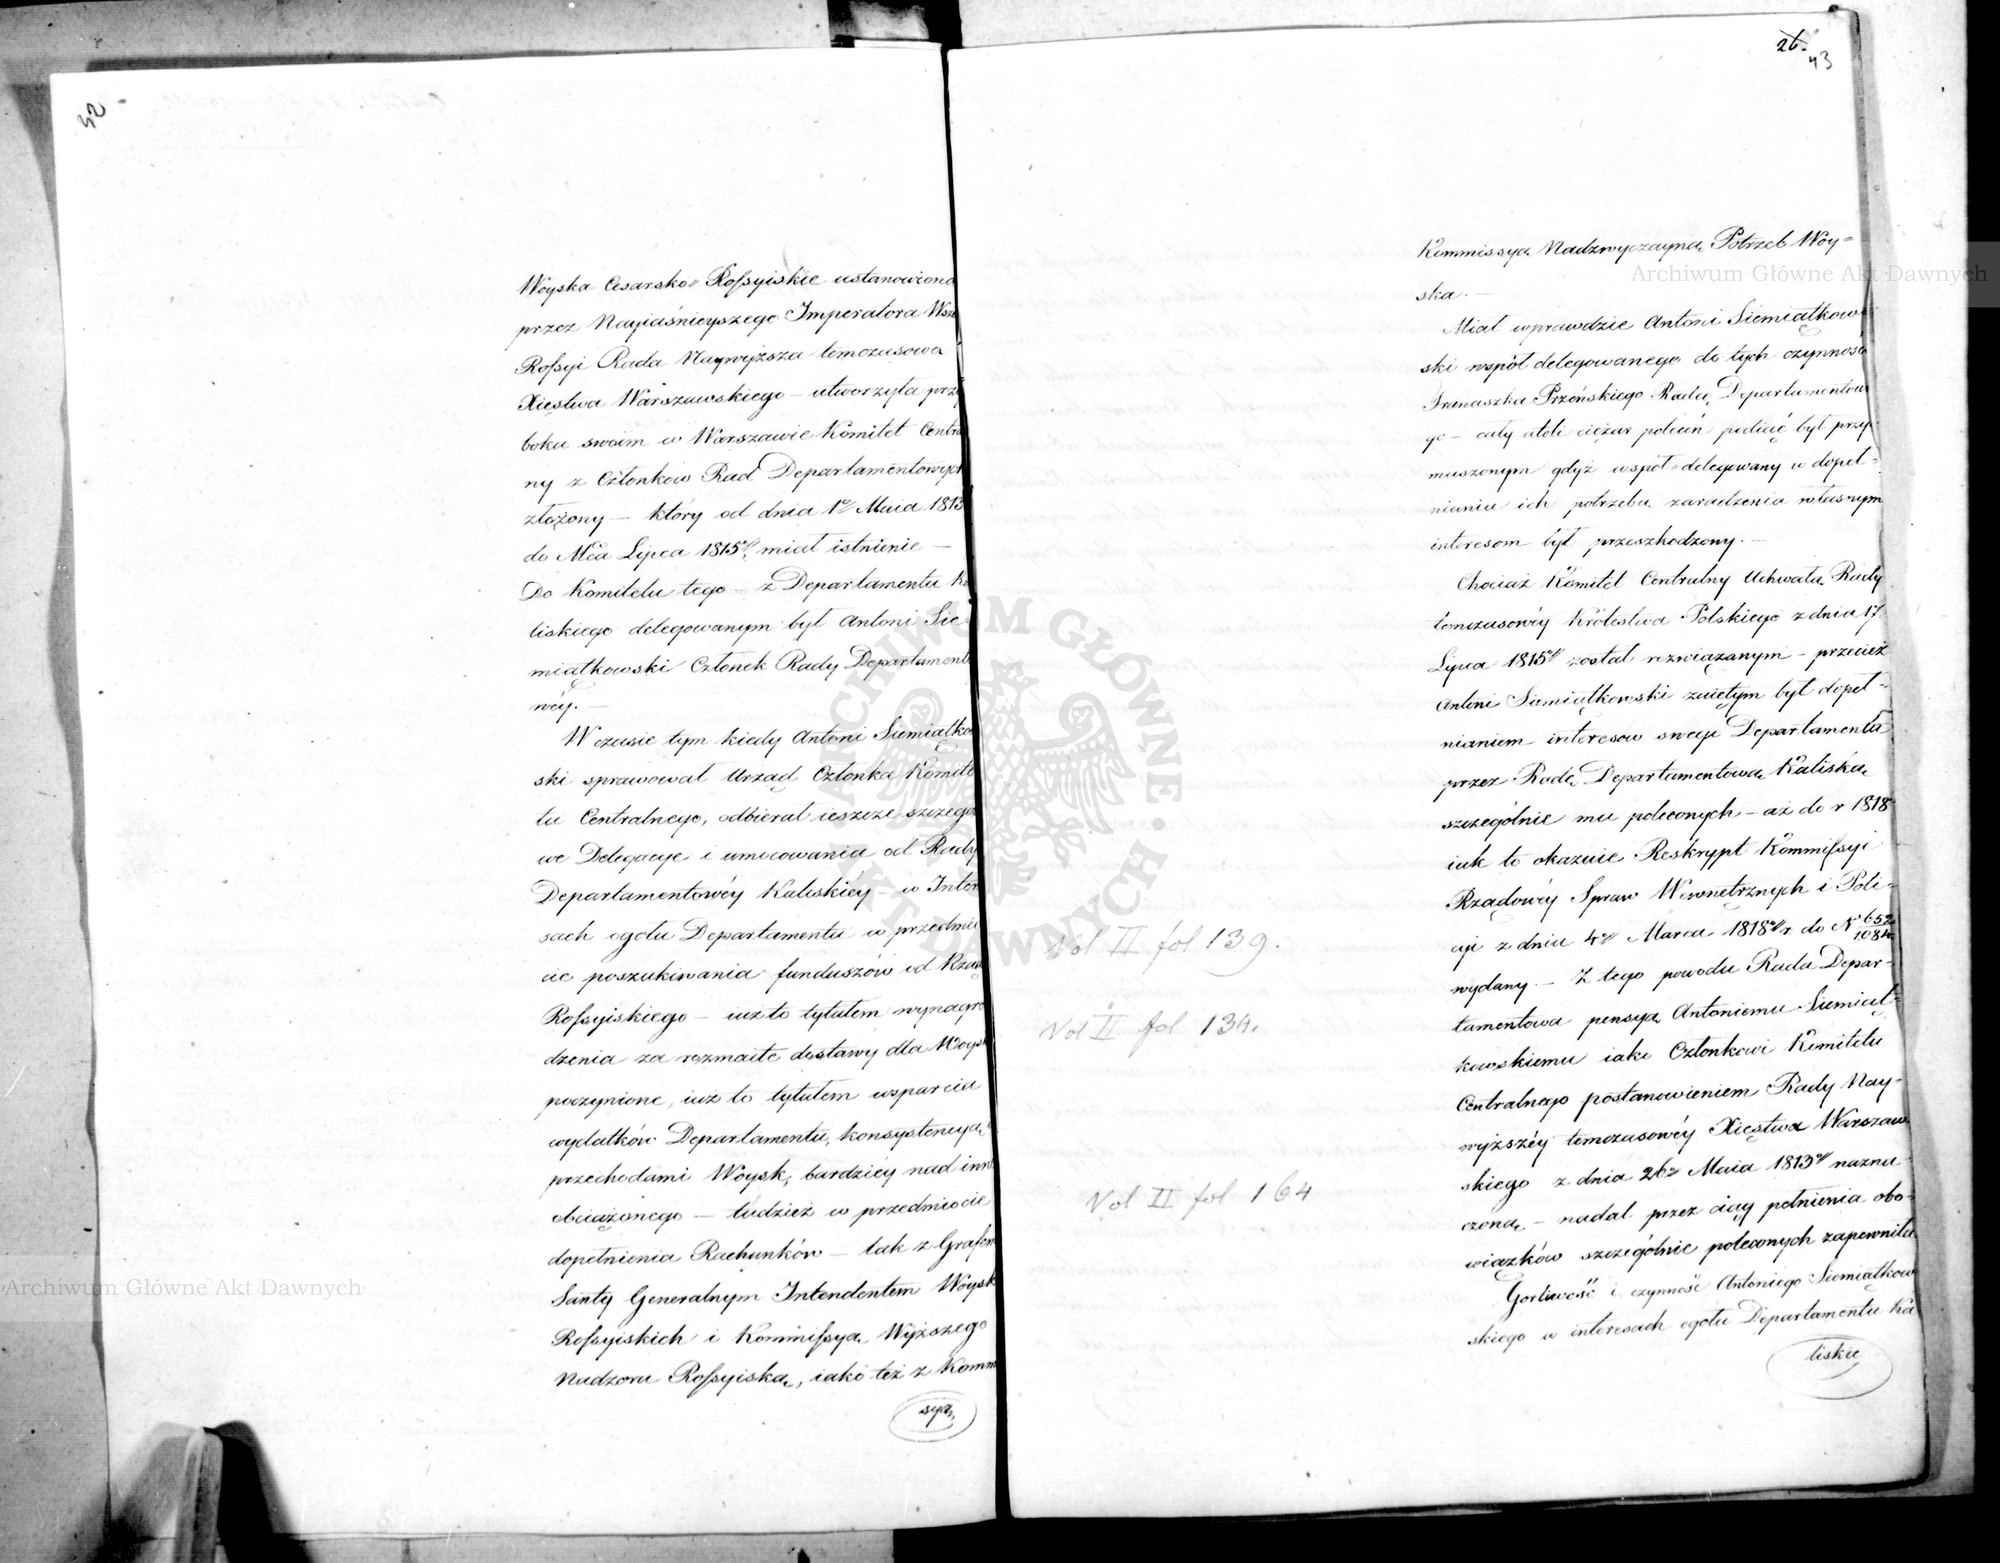 42
Woyska Cesarsko Rossyiskie ustanowiona
przez Nayiaśnieyszego Imperatora Wsze
Rossyi Rada Naywyższa temczasowa
Xięstwa Warszawskiego – utworzyła przy
boku swoim w Warszawie Komitet Central
ny z Członków Rad Departamentowych
złożony – który od dnia 1go Maia 1813
do Mca Lipca 1815 miał istnienie –
Do Komitetu tego – z Departamentu Ka
liskiego delegowanym był Antoni Sie
miątkowski Członek Rady Departamento
wéy. –
W czasie tym kiedy Antoni Siemiątkow
ski sprawował Urząd Członka Komite
tu Centralnego, odbierał ieszcze szczegól
we Delegacye i umocowania od Rady
Departamentowéy Kaliskiéy – w Inter
sach ogółu Departamentu w przedmio
cie poszukiwania funduszów od Rządu
Rossyiskiego – iuż to tytułem wynagro
dzenia za rozmaite dostawy dla Woysk
poczynione, iuż to tytułem wsparcia
wydatków Departamentu, konsystencyą
przechodami Woysk, bardziéy nad inne
obciążonego – tudzież w przedmiocie
dopełnienia Rachunków – tak z Grafem
Santy Generalnym Intendentem Woysk
Rossyiskich i Kommissyą Wyższego
Nadzoru Rossyiską, iako też z Kommi
syą
26. 43
Kommissyą Nadzwyczayną Potrzeb Woy=
ska. –
Miał wprawdzie Antoni Siemiątkow
ski współ delegowanego do tych czynnośc
Franciszka Przeńskiego Radcę Departamentow
go – cały atoli ciężar poleceń podiąć był przy
muszonym gdyż współ=delegowany w dopeł=
nianiu ich potrzebą zaradzenia własnym
interesom był przeszkodzony. –
Chociaż Komitet Centralny Uchwałą Rady
temczasowéy Królestwa Polskiego z dnia 17
Lipca 1815 został rozwiązanym – przecież
Antoni Siemiątkowski zaiętym był dopeł=
nianiem interesów swego Departamentu
przez Radę Departamentową Kaliską
szczególnie mu poleconych – aż do r 1818
iak to okazuie Reskrypt Kommissyi
Rządowéy Spraw Wewnętrznych i Poli=
cyi z dnia 4go Marca 1818 r. do N 652/1084
wydany. – Z tego powodu Rada Depar=
tamentowa pensyą Antoniemu Siemiąt=
kowskiemu iako Członkowi Komitetu
Centralnego postanowieniem Rady Nay=
wyższéy temczasowéy Xięstwa Warszaw
skiego z dnia 26go Maia 1813 nazna
czoną – nadal przez ciąg pełnienia obo=
wiązków szczególnie poleconych zapewniła
Gorliwość i czynność Antoniego Siemiątkow
skiego w interesach ogółu Departamentu Ka
liskie
Vol II fol 139.
Vol II fol 134.
Vol II fol 164
Archiwum Główne Akt Dawnych
Archiwum Główne Akt Dawnych
ARCHIWUM GŁÓWNE AKT DAWNYCH